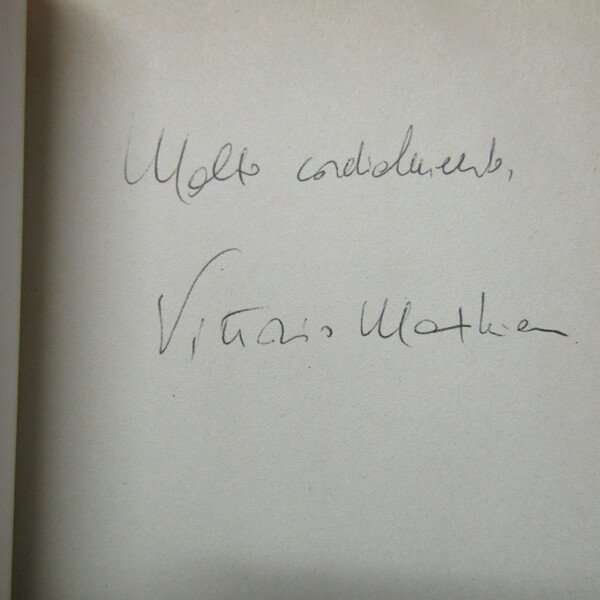 Molto cordialmente,
Vittorio Mathieu